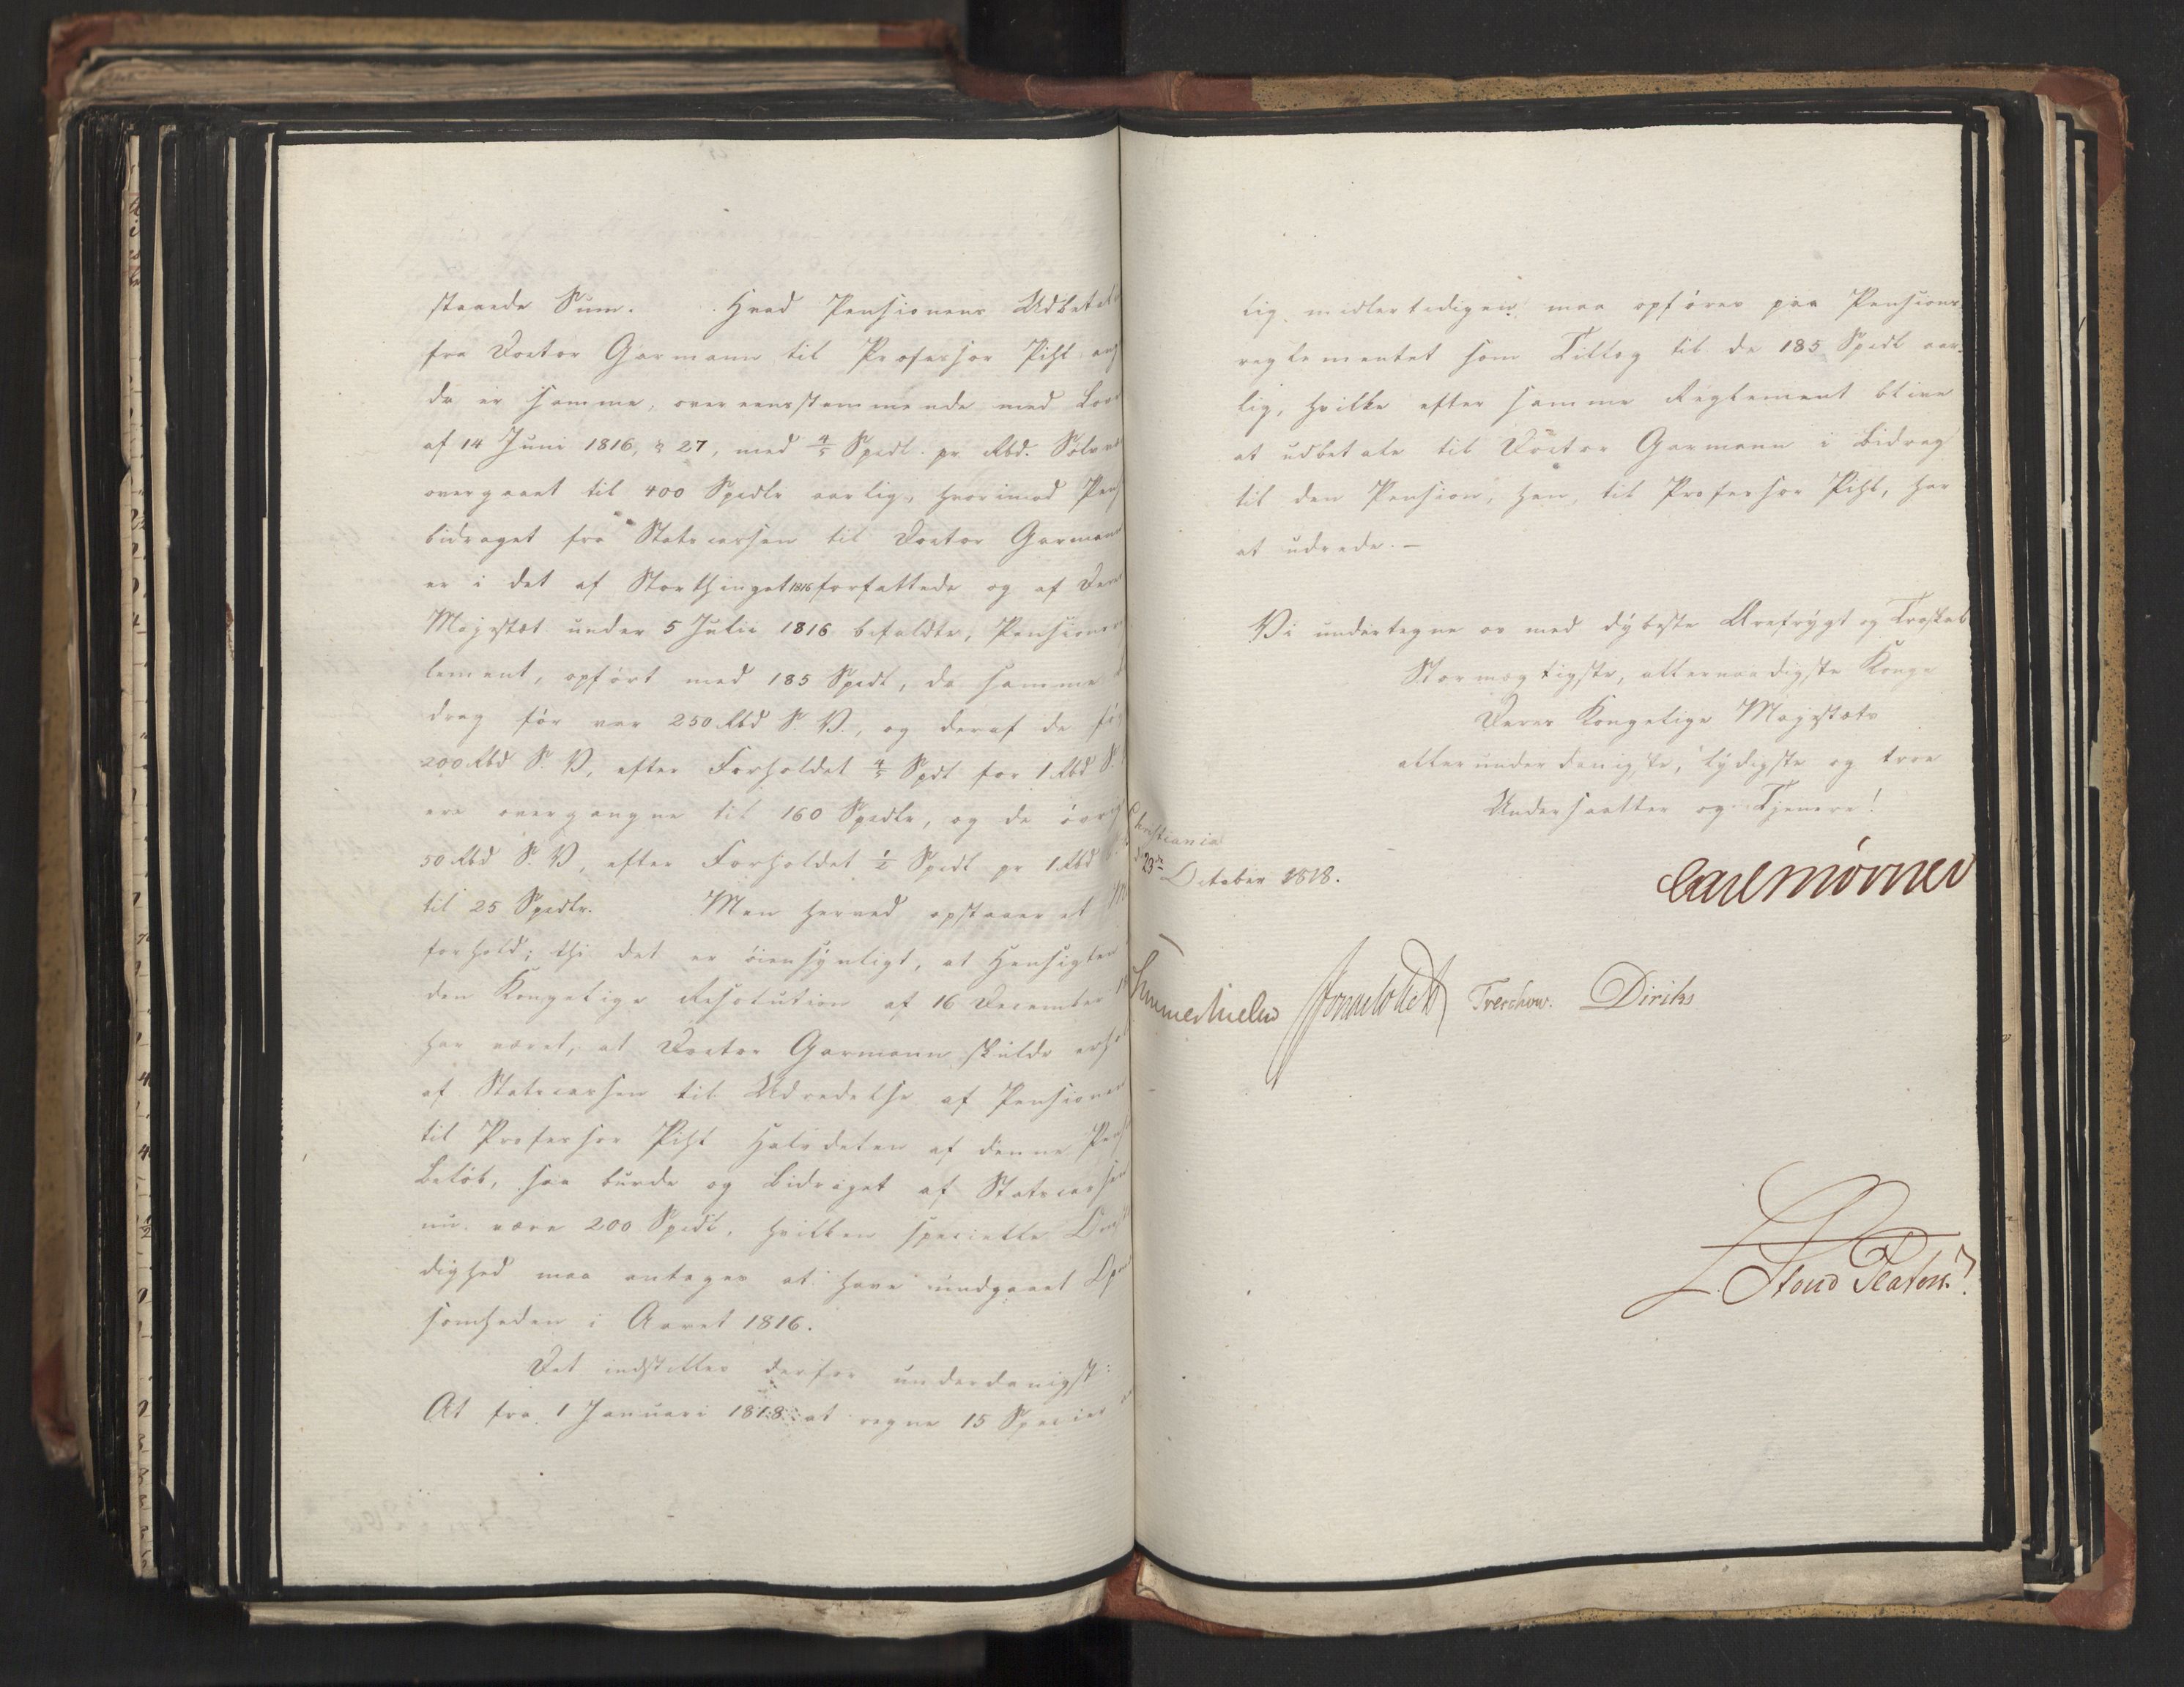 staaede Sum. Hvad Pensionens Udbetal
fra Doctor Garmann til Professor Pihl ang
da er samme, overeensstemmende med Lov
af 14 Juni 1816, § 27, med 4/5 Spedl. pr. Rbd. Sølvv
overgaaet til 400 Spedlr aarlig, hvorimod Pens
bidraget fra Statscassen til Doctor Garmann
er i det af Storthinget 1816 forfattede og af Deres
Majestæt under 5 Julii 1816 befalede, Pensions
lement, opført med 185 Spedl, da samme
drag før var 250 Rbd S. V., og deraf de før
200 Rbd S. V, efter Forholdet 4/5 Spdl for 1 Rbd S.
ere overgangne til 160 Spedlr, og de øvrig
50 Rbd S. V, efter Forholdet 1/2 Spedl pr 1 Rbd
til 25 Spedlr. Men herved opstaaer et Mi
forhold; thi det er öiensynligt, at Hensigten
den Kongelige Resolution af 16 December
har været, at Doctor Garmann skulde erhol
af Statscassen til Udredelse af Pensionen
til Professor Pihl Halvdelen af denne Pens
Beløb, saa burde og Bidraget af Statscassen
nu være 200 Spedl, hvilken specielle Omst
dighed maa antages at have undgaaet Opm
somheden i Aaret 1816.
Det indstilles derfor underdanigst:
At fra 1 Januari 1818 at regne 15 Species
lig midlertidigen maa opføres paa Pensions
reglementet som Tillæg til de 185 Spedl aar-
lig, hvilke efter samme Reglement blive
at udbetale til Doctor Garmann i Bidrag
til den Pension, han, til Professor Pihl, har
at udrede. —
Vi undertegne os med dybeste Ærefrygt og Troskab
Stormægtigste, allernaadigste Konge
Deres Kongelige Majestæts
allerunderdanigste, lydigste og troe
Undersaatter og Tjenere!
Christiania
d 29de October 1818.
Carl Mörner
Sommerhielm Treschow. Diriks
L. Stoud Platou